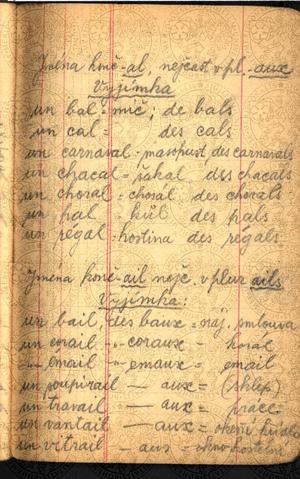 Jména konč-al, nejčast v pl.-aux
Výjimka
un bal = míč; de bals
un cal = des cals
un carnaval - masopust, des carnavals
un chacal = šakal des chacals
un choral = chorál des chorals
un pal = kůl des pals
un régal - hostina des régals
Jména konč-ail nejč. v plur ails
Výjimka:
un bail, des baux = náj. smlouva
un corail -"- coraux - korál
-"- email -"- emaux - email
un soupirail — aux = (sklep)
un travail — aux = práce
un vantail — aux = okení křídlo
un vitrail — aux = okno kostelní